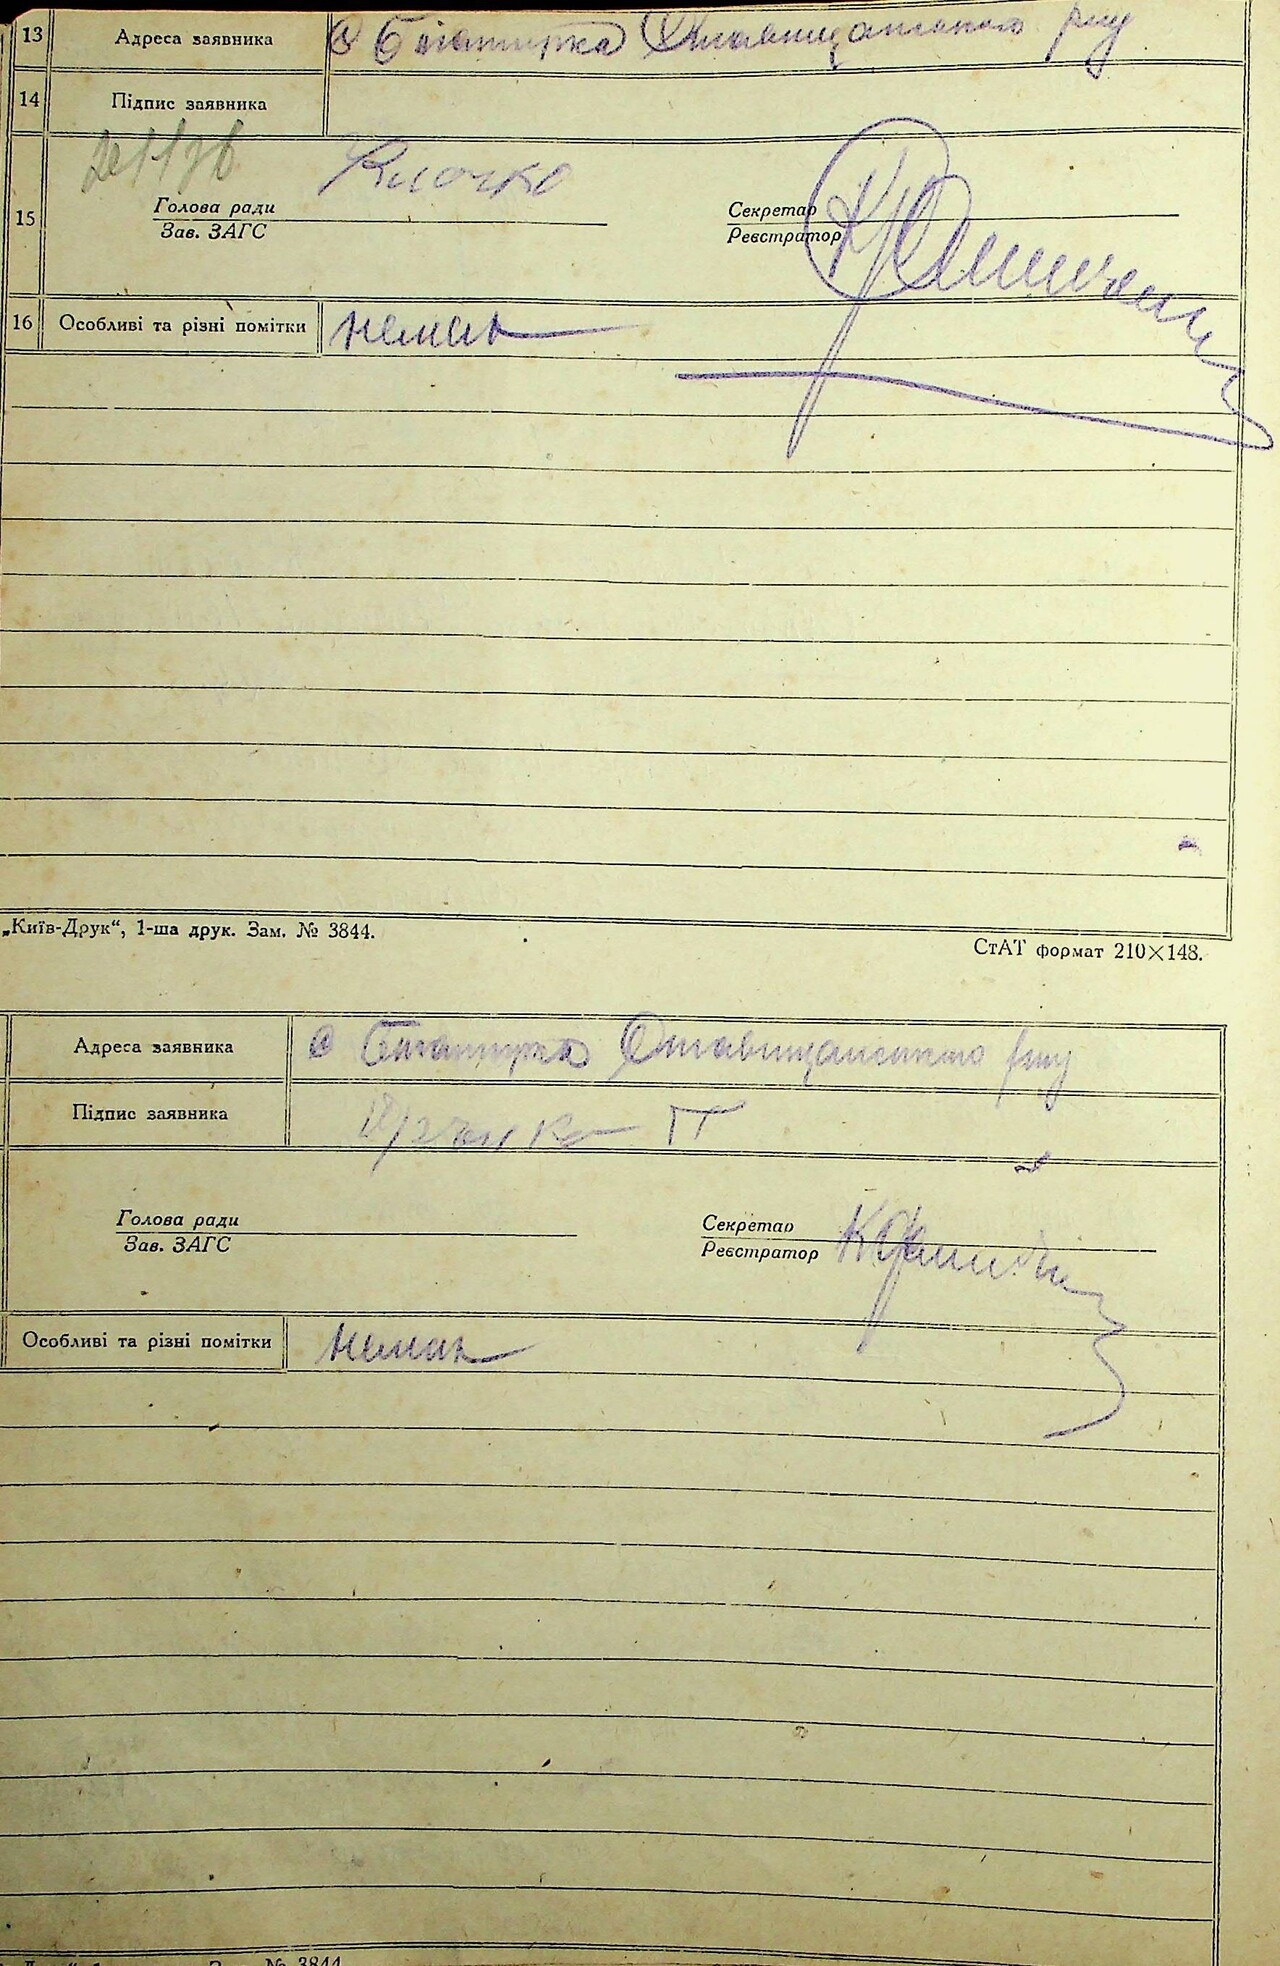 13 Адреса заявника с Богатирка Ставищанського р-ну
14 Підпис заявника
Клочко
15 Голова ради Секретар
Зав. ЗАГС Реєстратор
16 Особливі та різні помітки немає
„Київ-Друк“, 1-ша друк. Зам. № 3844.
СтАТ формат 210×148.
Адреса заявника с Богатирка Ставищанського р-ну
Підпис заявника П
Голова ради Секретар
Зав. ЗАГС Реєстратор
Особливі та різні помітки немає
№ 3844